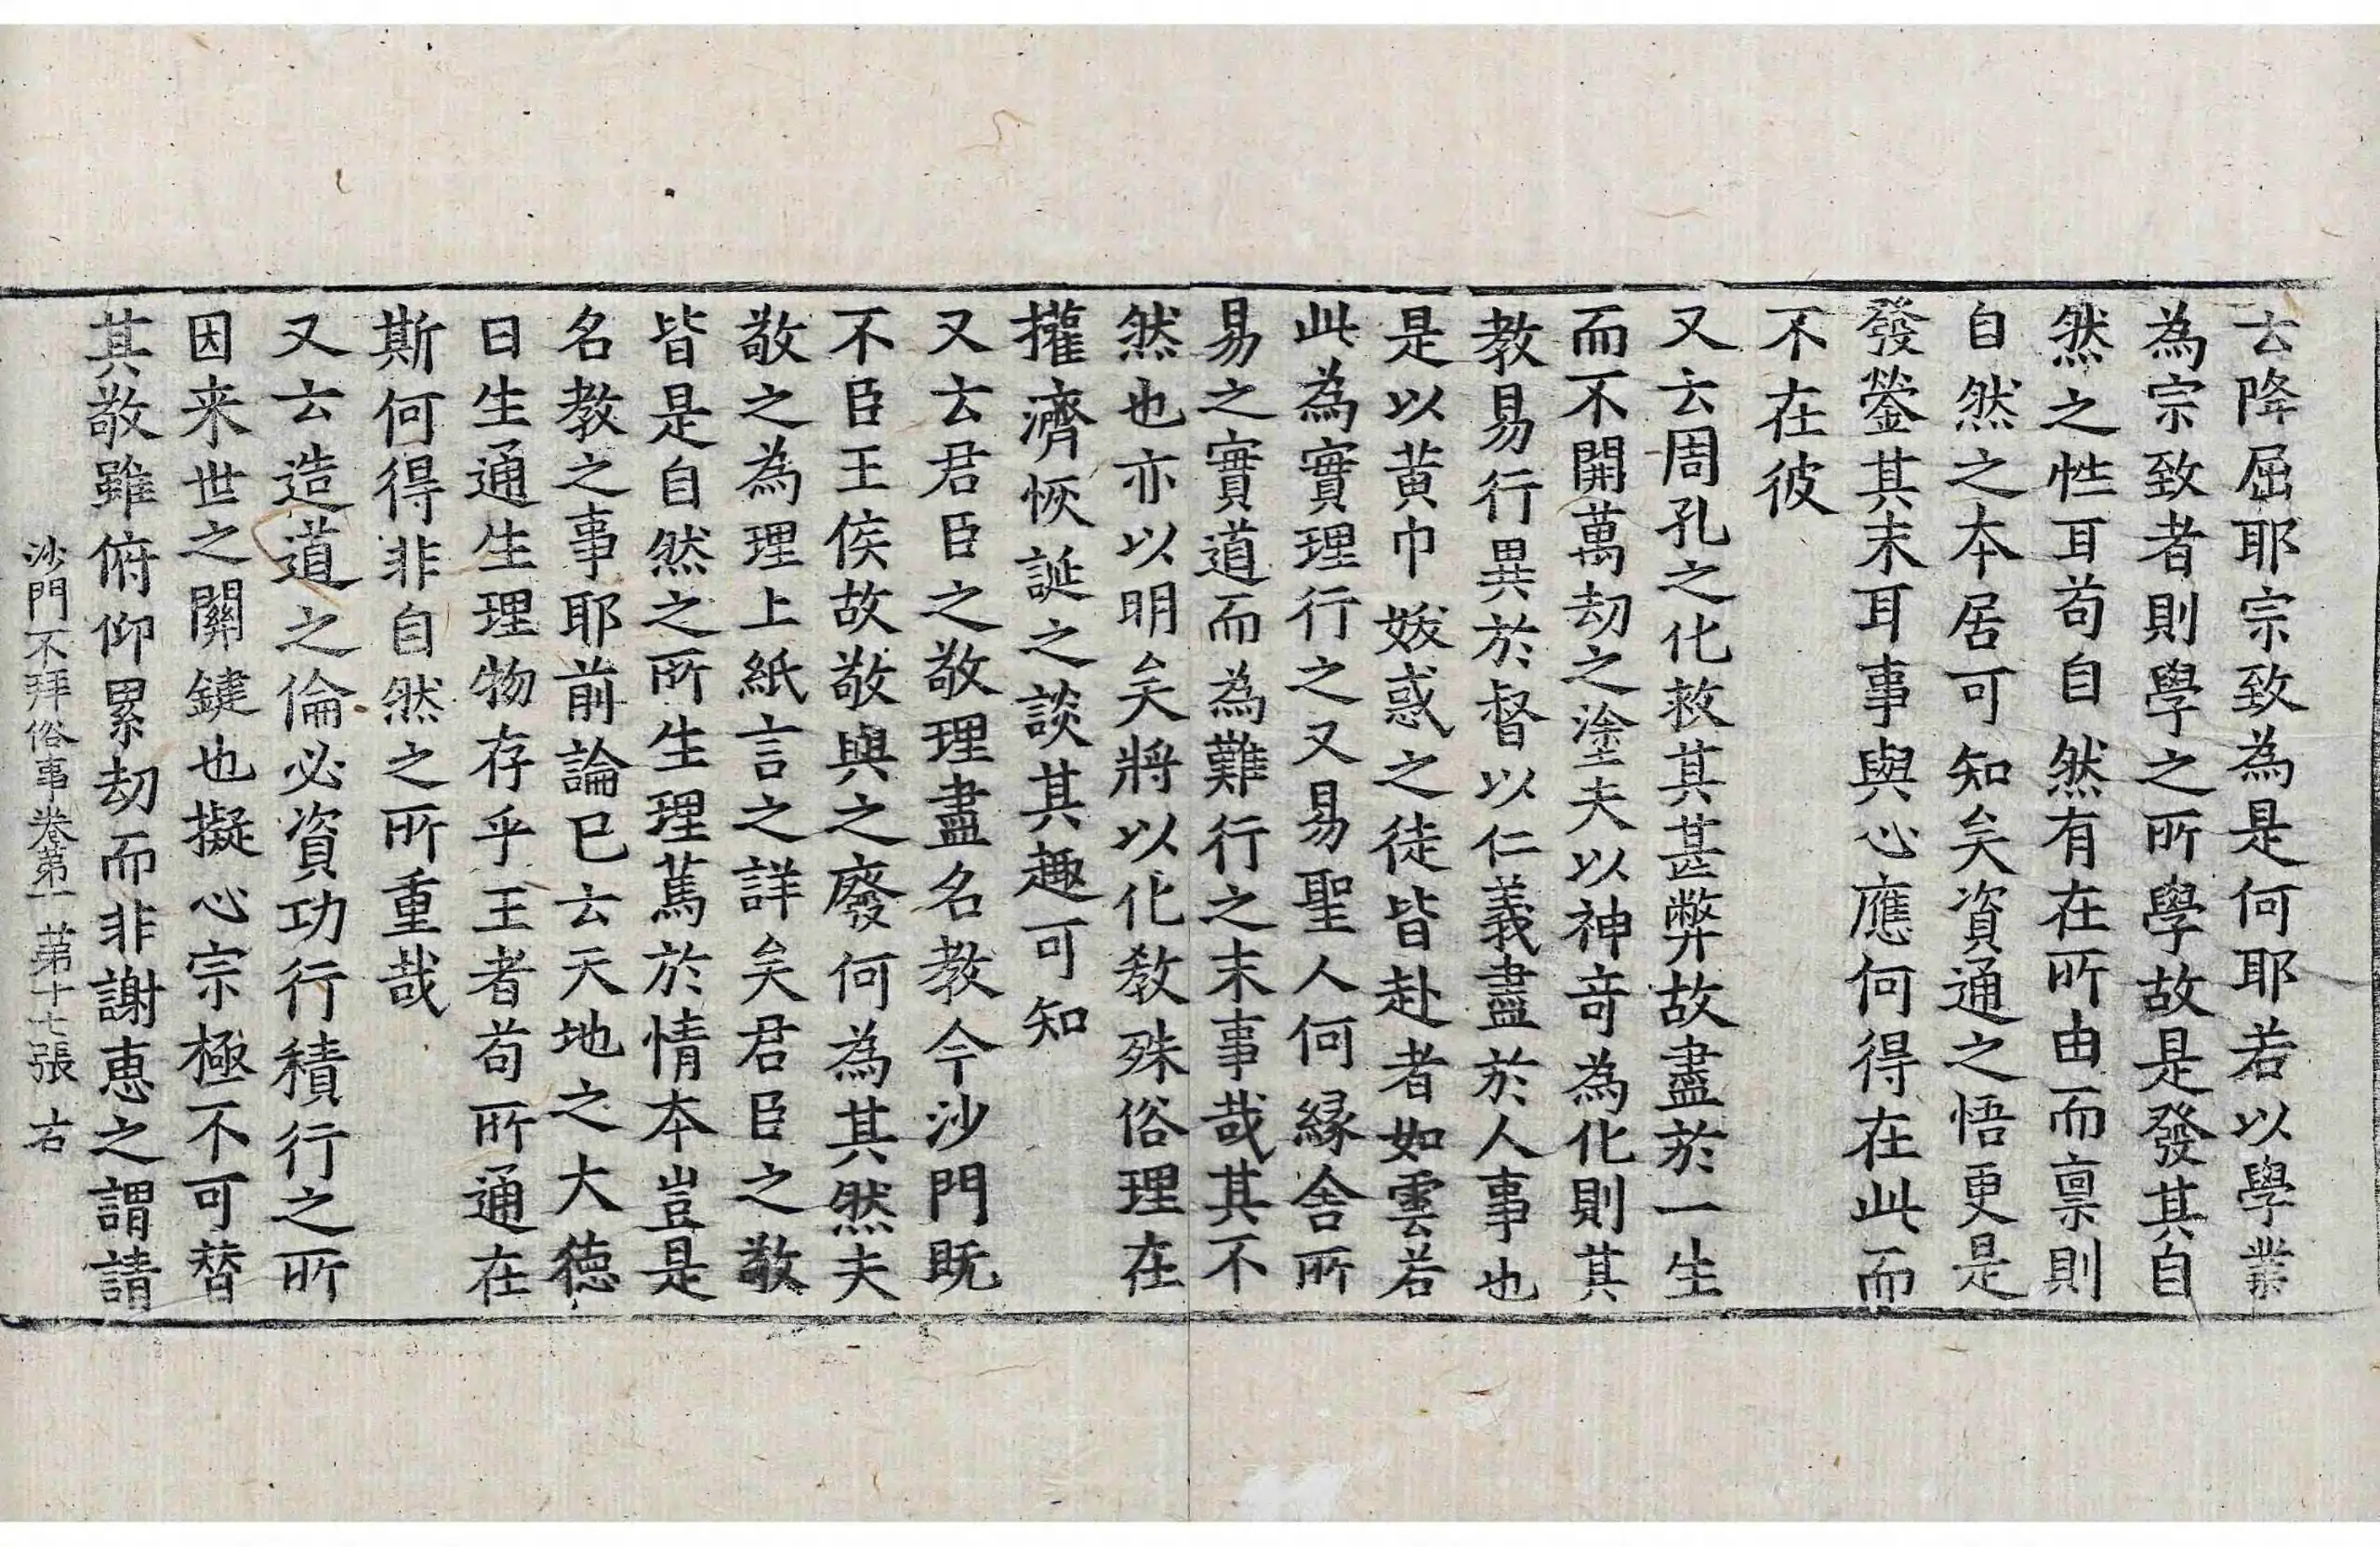 云降屈耶宗致為是何耶若以學業
為宗致者則學之所學故是發其自
然之性耳苟自然有在所由而禀則
自然之本居可知矣資通之悟更是
發瑩其末耳事與心應何得在此而
不在彼
又云周孔之化救其甚弊故盡於一生
而不開萬劫之塗夫以神竒為化則其
教易行異於督以仁義盡於人事也
是以黄巾妖惑之徒皆赴者如雲若
此為實理行之又易聖人何緣舍所
易之實道而為難行之末事哉其不
然也亦以明矣將以化教殊俗理在
權濟恢誕之談其趣可知
又云君臣之敬理盡名教今沙門既
不臣王侯故敬與之廢何為其然夫
敬之為理上紙言之詳矣君臣之敬
皆是自然之所生理篤於情本豈是
名教之事耶前論已云天地之大德
曰生通生理物存乎王者苟所通在
斯何得非自然之所重哉
又云造道之倫必資功行積行之所
因来世之關鍵也擬心宗極不可替
其敬雖俯仰累劫而非謝恵之謂請
沙門不拜俗事卷第一 第十七張 右